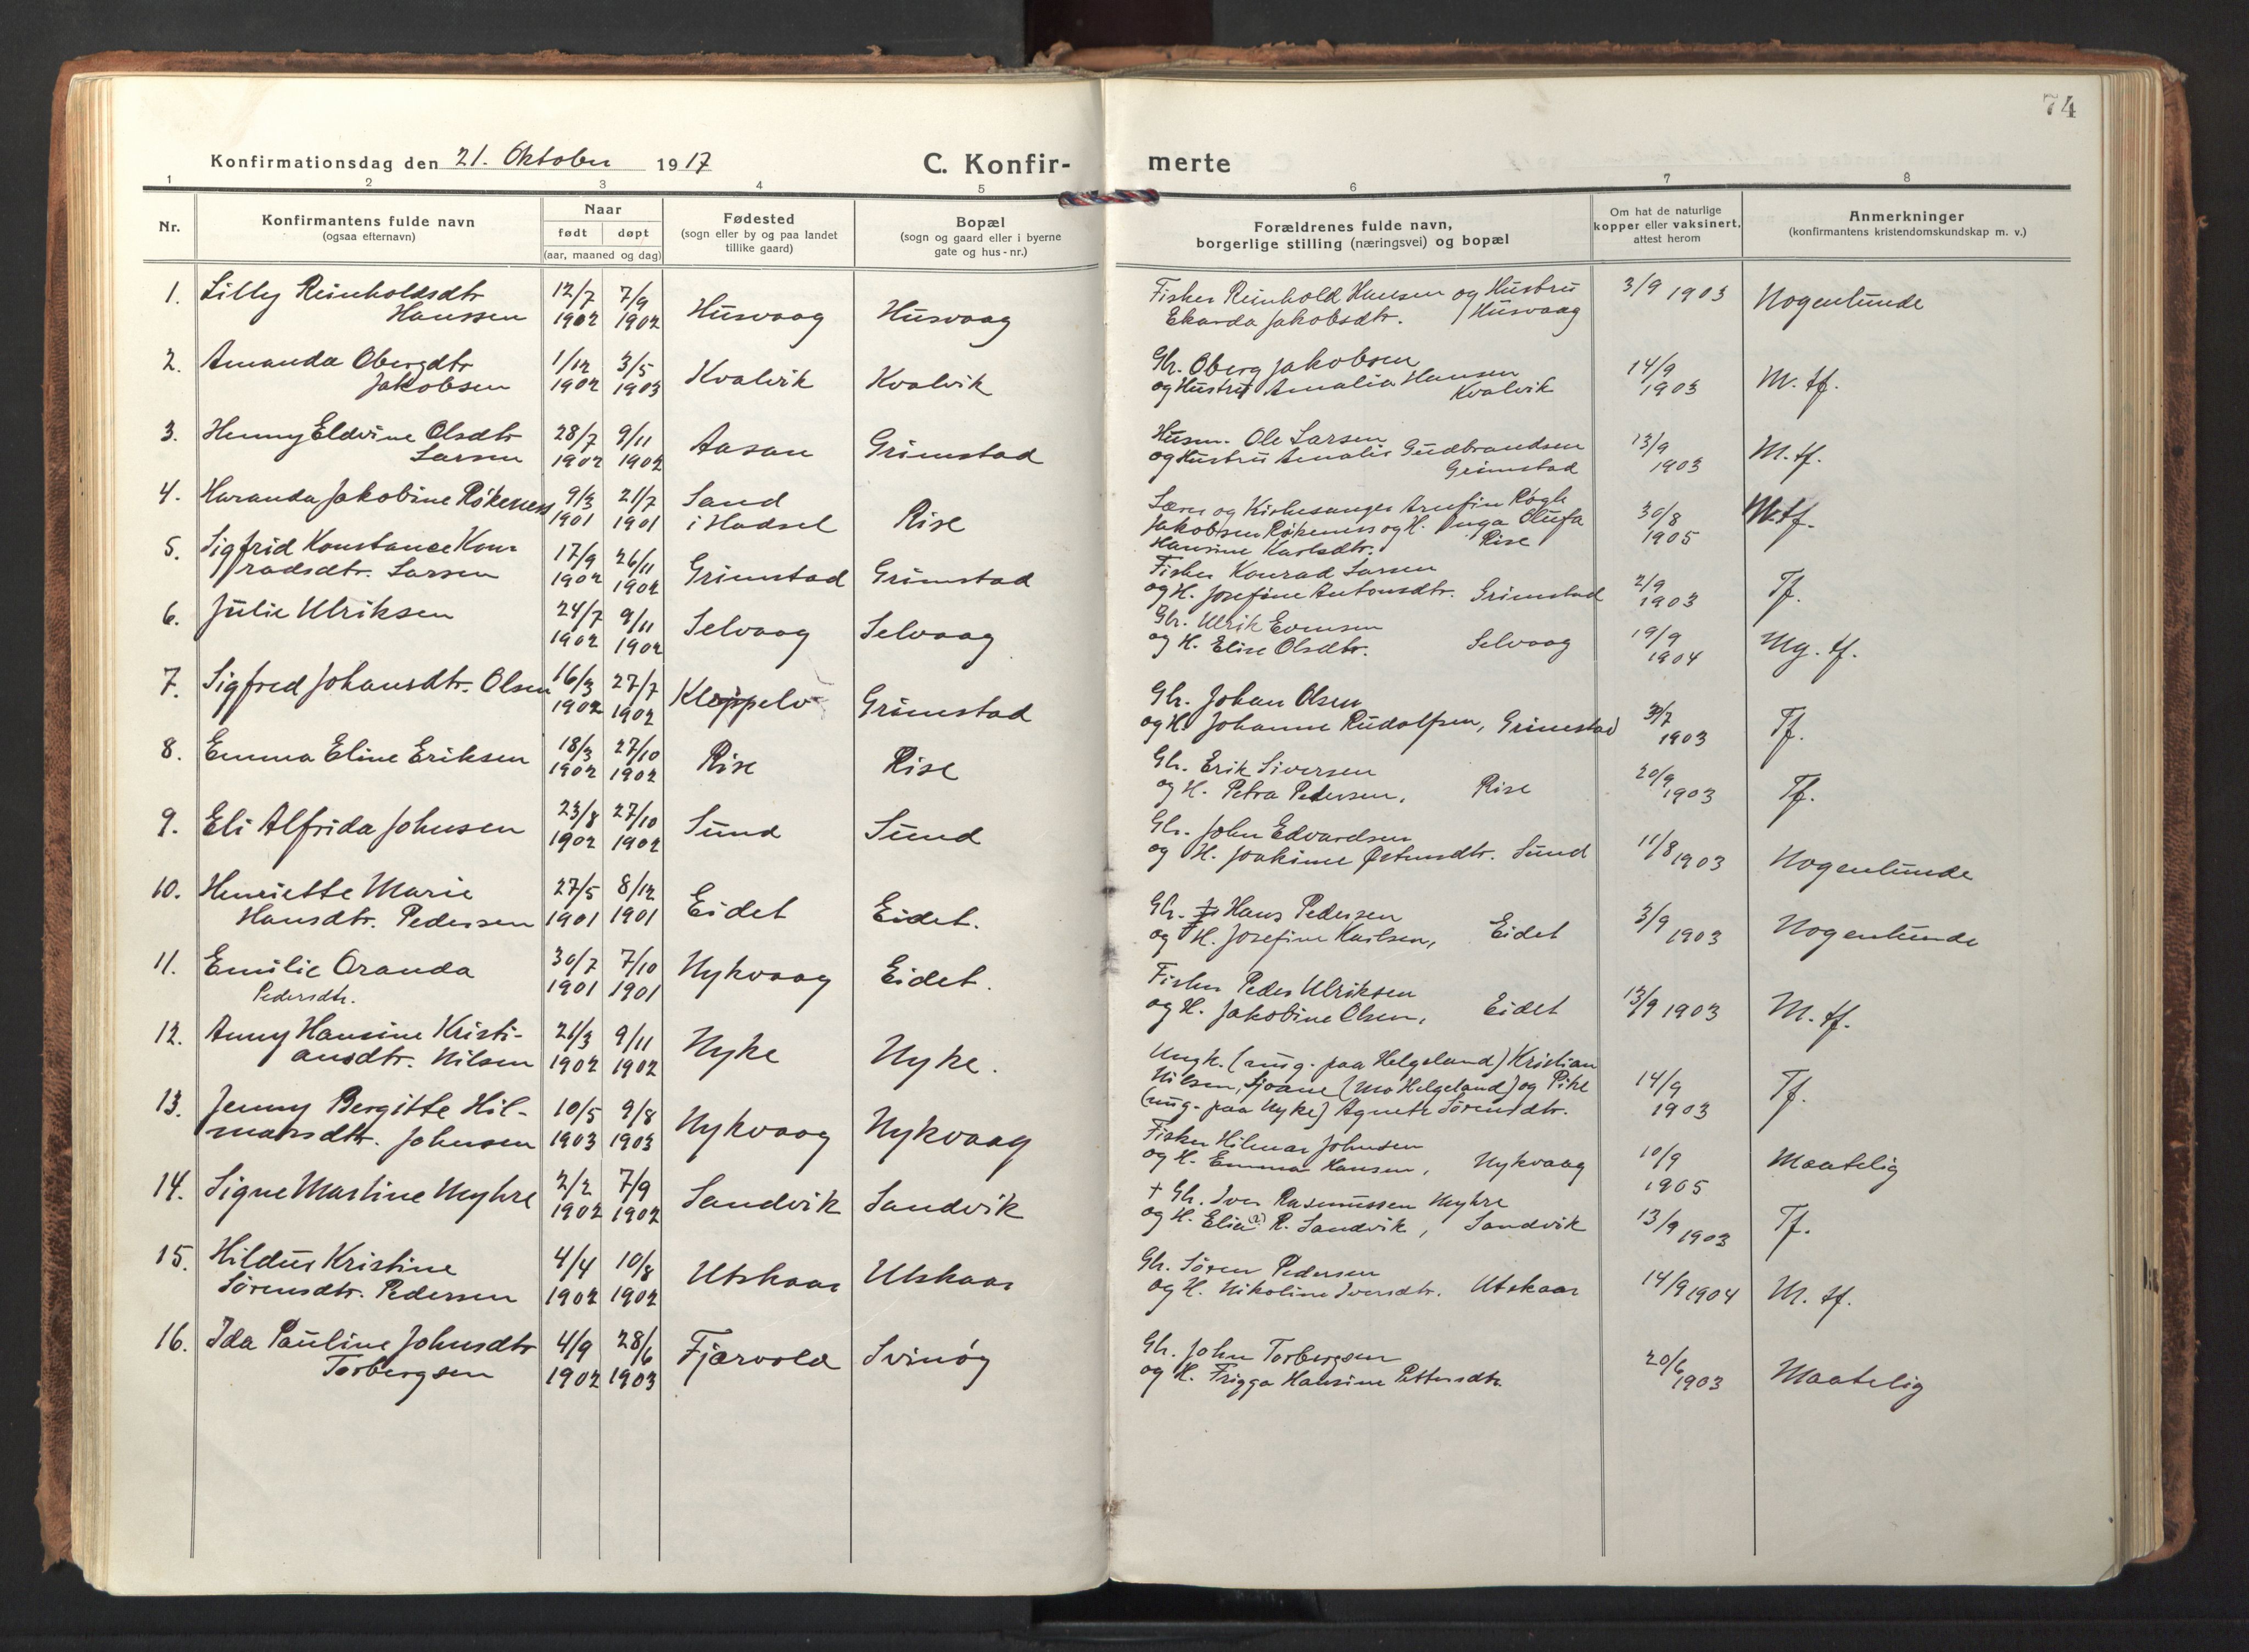 74
Konfirmationsdag den 21. Oktober 1917
C. Konfir-
merte
1 2 3 4 5 6 7 8
Nr.
Konfirmantens fulde navn
(ogsaa efternavn)
Naar
født døpt
(aar, maaned og dag)
Fødested
(sogn eller by og paa landet
tillike gaard)
Bopæl
(sogn og gaard eller i byerne
gate og hus-nr.)
Forældrenes fulde navn,
borgerlige stilling (næringsvei) og bopæl
Om hat de naturlige
kopper eller vaksinert,
attest herom
Anmerkninger
(konfirmantens kristendomskundskap m. v.)
1. Lilly Reinholdsdtr 12/7 7/9 Fisker Reinhold Hansen og Hustru 3/9 1903 Nogenlunde
Hanssen 1902 1902 Husvaag Husvaag Ekarda Jakobsdtr. / Husvaag
2. Amanda Obergdtr 1/12 3/5 Gbr. Oberg Jakobsen 14/9
Jakobsen 1902 1903 Kvalvik Kvalvik og Hustru Amalia Hansen 1903 M. tf.
Kvalvik
3. Henny Eldvine Olsdtr 28/7 9/11 Husm. Ole Larsen 13/9
Larsen 1902 1902 Aasan Grimstad og Hustru Amalie Gudbrandsen 1903 M. tf.
Grimstad
4. Haranda Jakobine Røkenes 9/3 21/7 Sand Lærer og Kirkesanger Arnfin
1901 1901 i Hadsel Rise Jakobsen Røkenes og H. Inga Olufa 30/8 M. tf.
Hansine Karlsdtr. Rise 1905
5. Sigfrid Konstance Kon- 17/9 26/11 Fisker Konrad Larsen 2/9
radsdtr. Larsen 1902 1902 Grimstad Grimstad og H. Josefine Antonsdtr. Grimstad 1903 Tf.
6. Julie Ulriksen 24/7 9/11 Gbr. Ulrik Evensen 19/9
1902 1902 Selvaag Selvaag og H. Elise Olsdtr. Selvaag 1904 Mg. tf.
7. Sigfred Johansdtr. Olsen 16/3 27/7 Gbr. Johan Olsen
1902 1902 Grimstad og H. Johanne Rudolfsen, Grimstad 1903 Tf.
8. Emma Eline Eriksen 18/3 27/10 Gbr. Erik Siversen 20/9
1902 1902 Rise Rise og H. Petra Pedersen, Rise 1903 Tf.
9. Eli Alfrida Johnsen 23/8 27/10 Gbr. John Edvardsen 11/8
1902 1902 Sund Sund og H. Joakime Østensdtr. Sund 1903 Nogenlunde
10. Henriette Marie 27/5 8/12 Gbr. Hans Pedersen 3/9
Hansdtr. Pedersen 1901 1901 Eidet Eidet. og H. Josefine Karlsen, Eidet 1903 Nogenlunde
11. Emilie Oranda 30/7 7/10 Fisker Peder Ulriksen
Pedersdtr. 1901 1901 Nykvaag Eidet. og H. Jakobine Olsen, Eidet 13/9 1903 M. tf.
12. Anny Hansine Kristi- 21/3 9/11 Ungk. (ung. paa Helgeland) Kristian
ansdtr. Nilsen 1902 1902 Nyke Nyke. Nilsen, (Mo Helgeland) og Pike 14/9
(ung. paa Nyke) Agnete Sørensdtr. 1903 Tf.
13. Jenny Bergitte Hil- 10/5 9/8 Fisker Hilmar Johnsen 10/9
marsdtr. Johnsen 1903 1903 Nykvaag Nykvaag og H. Emma Hansen, Nykvaag 1905 Maatelig
14. Signe Martine Myhre 2/2 7/9 † Gbr. Iver Rasmussen Myhre 13/9
1902 1902 Sandvik Sandvik og H. R. Sandvik, Sandvik 1903 Tf.
15. Hildur Kristine 4/4 10/8 Gbr. Sören Pedersen
Sörensdtr. Pedersen 1902 1902 Utskaar Utskaar og H. Nikoline Iversdtr. Utskaar 14/9 1904 M. tf.
16. Ida Pauline Johnsdtr 4/9 28/6 Gbr. John Torbergsen 20/6
Torbergsen 1902 1903 Fjærvold Svinøy og H. Frigga Hansine Pettersdtr. 1903 Maatelig